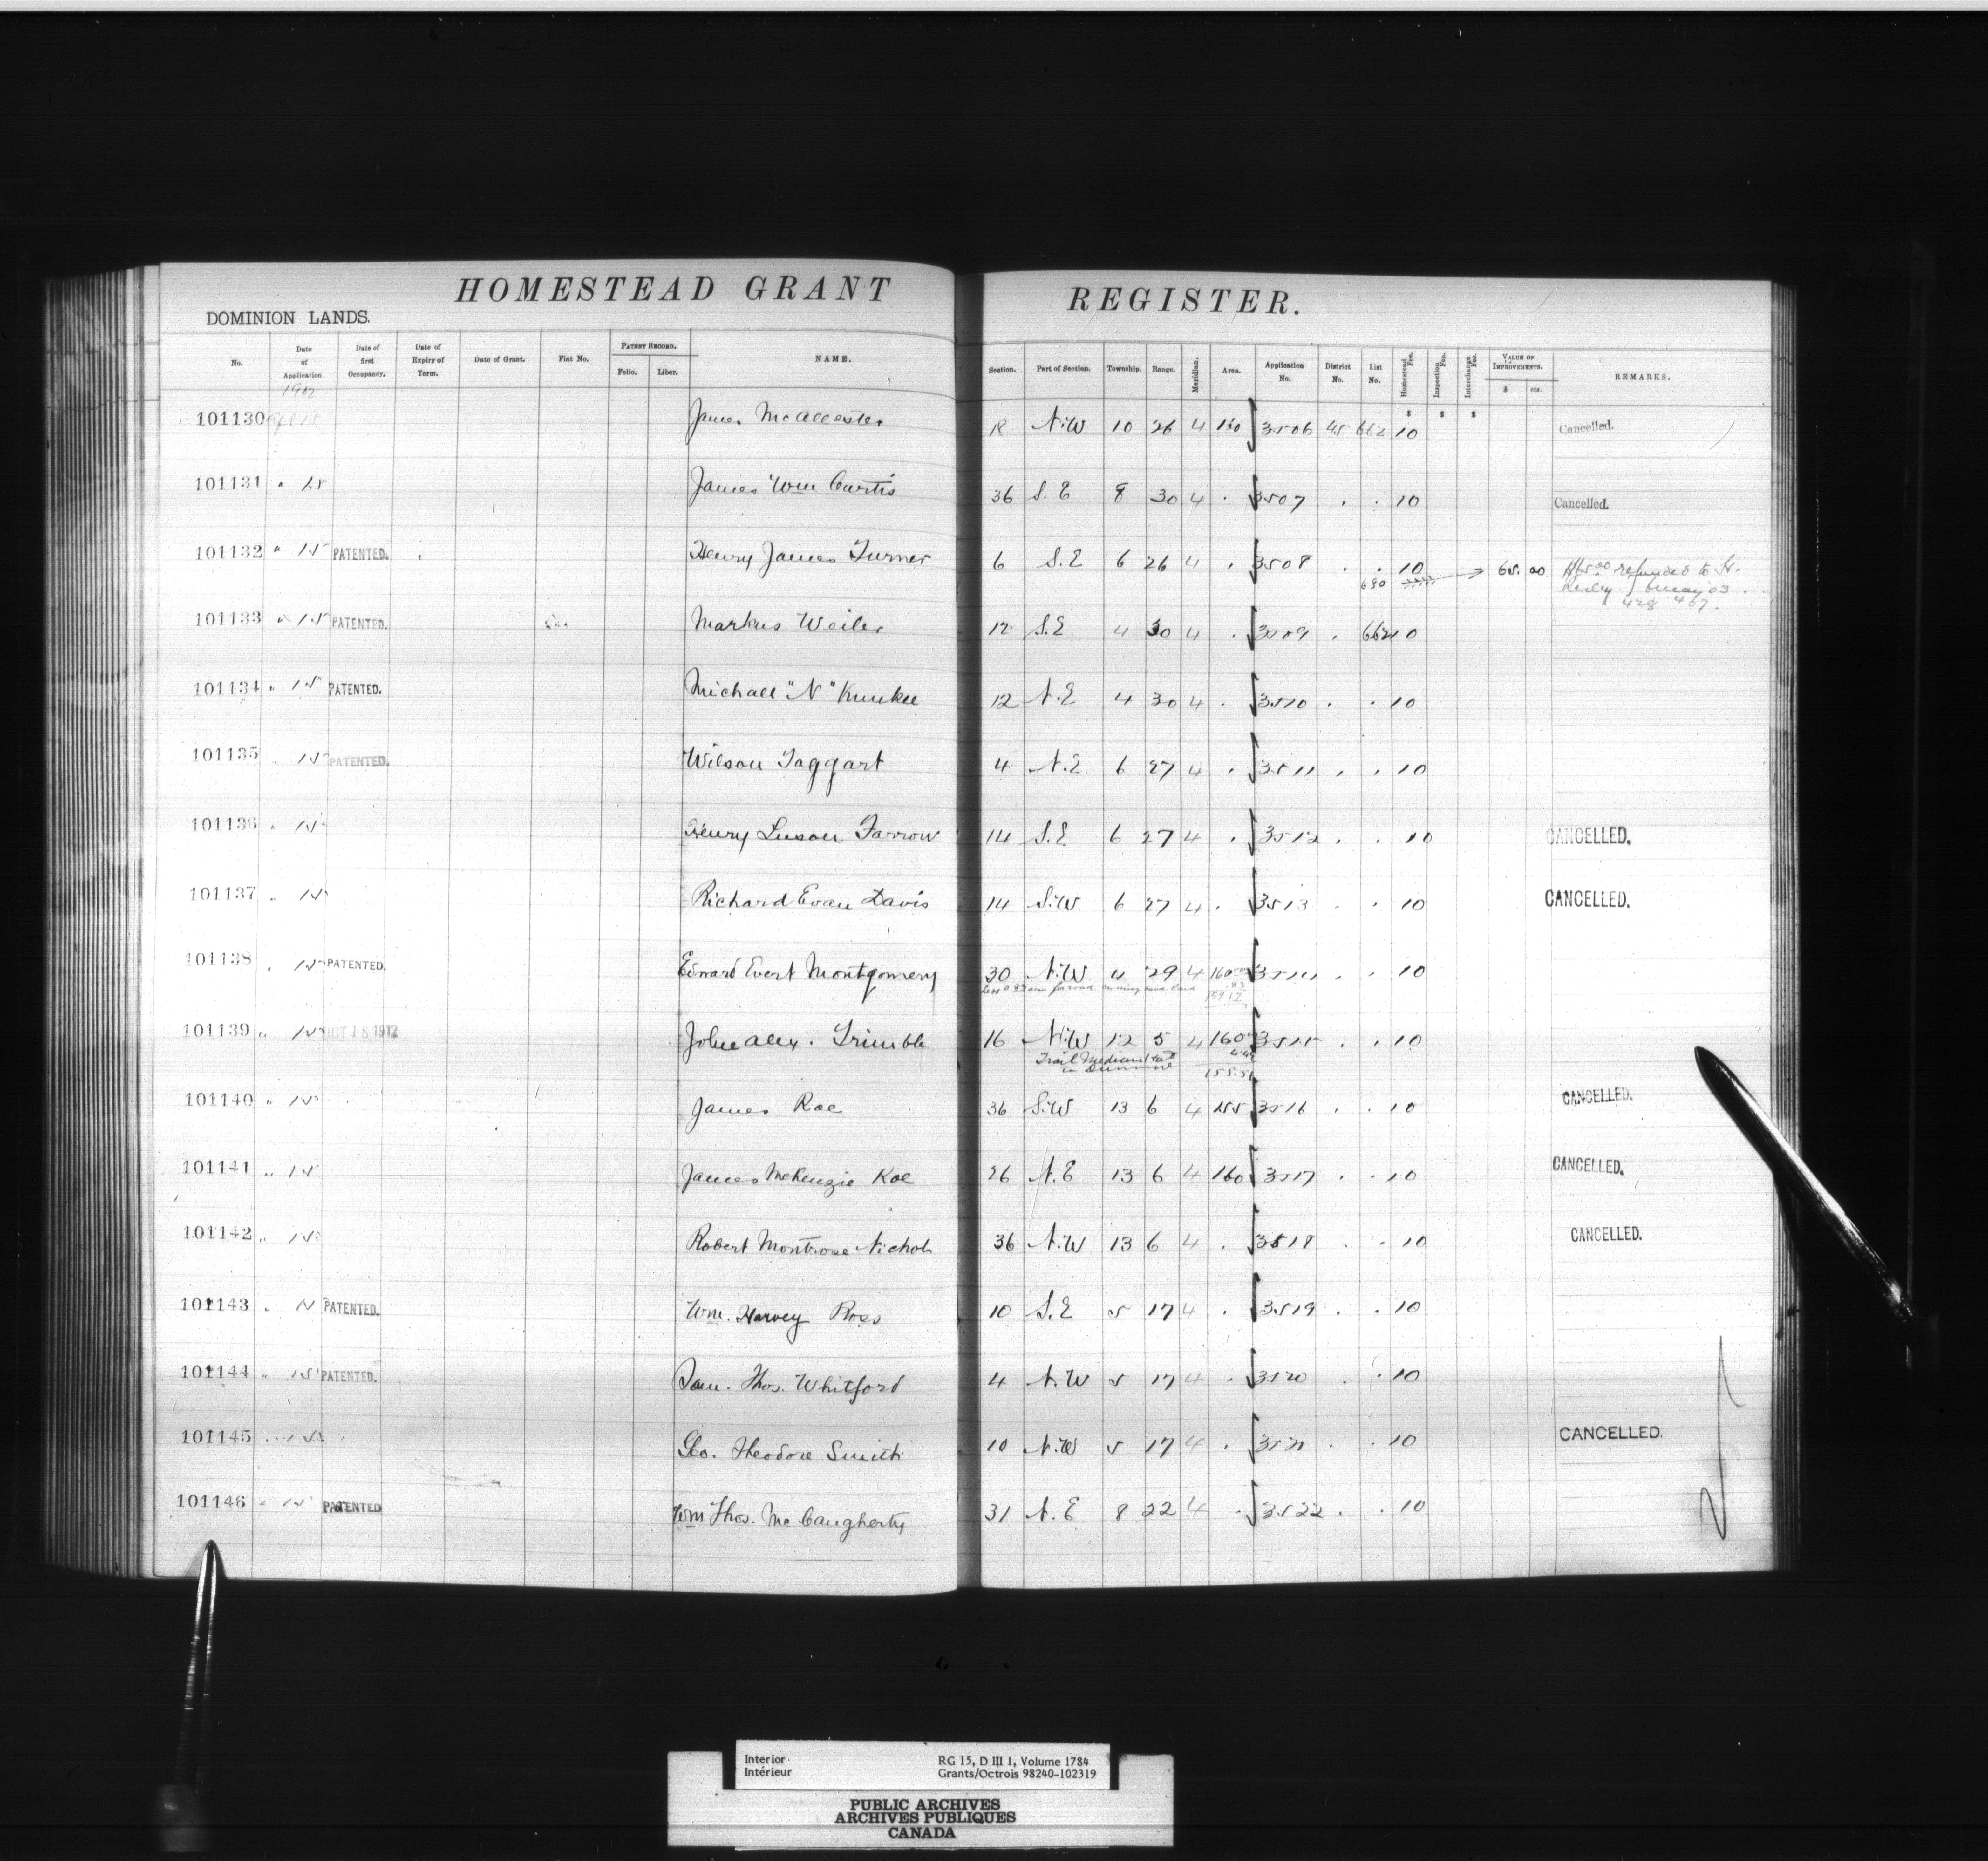 HOMESTEAD GRANT REGISTER.
DOMINION LANDS.
No. Date of Application. Date of first Occupancy. Date of Expiry of Term. Date of Grant. Fiat No. PATENT RECORD. Folio. Liber. NAME. Section. Part of Section. Township. Range. Meridian. Area. Application No. District No. List No. Homestead Fee. Inspection Fee. Interchange Fee. VALUE OF IMPROVEMENTS. $ cts. REMARKS.
1902
$ $ $
101130 James McAllester N.W 10 26 4 160 3506 45 662 10 Cancelled.
101131 " 15 James Wm Curtis 36 S.E 8 30 4 . 3507 . . 10 Cancelled.
101132 " 15 PATENTED. Henry James Turner 6 S.E 6 26 4 . 3508 . . 10 65.00 $65.00 refunded to H.
690 May 03
428 467.
101133 " 15 PATENTED. Markus Weiler 12 S.E 4 30 4 . 3509 . 662 10
101134 " 15 PATENTED. Michael "N" Kunkel 12 N.E 4 30 4 . 3510 . . 10
101135 " 15 PATENTED. Wilson Taggart 4 N.E 6 27 4 . 3511 . . 10
101136 " 15 Henry Luson Farrow 14 S.E 6 27 4 . 3512 . . 10 CANCELLED.
101137 " 15 Richard Evan Davis 14 S.W 6 27 4 . 3513 . . 10 CANCELLED.
101138 " 15 PATENTED. Edward Evert Montgomery 30 N.W 4 29 4 160.00 3514 . . 10
101139 " 15 OCT 18 1912 John Alex. Trimble 16 N.W 12 5 4 160 3515 . . 10
Trail Medicine Hat
to Dunmore 155.51
101140 " 15 James Rae 36 S.W 13 6 4 155 3516 . . 10 CANCELLED.
101141 " 15 James McKenzie Rae 26 N.E 13 6 4 160 3517 . . 10 CANCELLED.
101142 " 15 Robert Montrose Nichols 36 N.W 13 6 4 . 3518 . . 10 CANCELLED.
101143 " 15 PATENTED. Wm. Harvey Ross 10 S.E 5 17 4 . 3519 . . 10
101144 " 15 PATENTED. Sam. Thos. Whitford 4 N.W 5 17 4 . 3520 . . 10
101145 " 15 Geo. Theodore Smith 10 N.W 5 17 4 . 3521 . . 10 CANCELLED.
101146 " 15 PATENTED Wm Thos. McCaugherty 31 N.E 8 22 4 . 3522 . . 10
Interior RG 15, D III 1, Volume 1784
Intérieur Grants/Octrois 98240-102319
PUBLIC ARCHIVES
ARCHIVES PUBLIQUES
CANADA